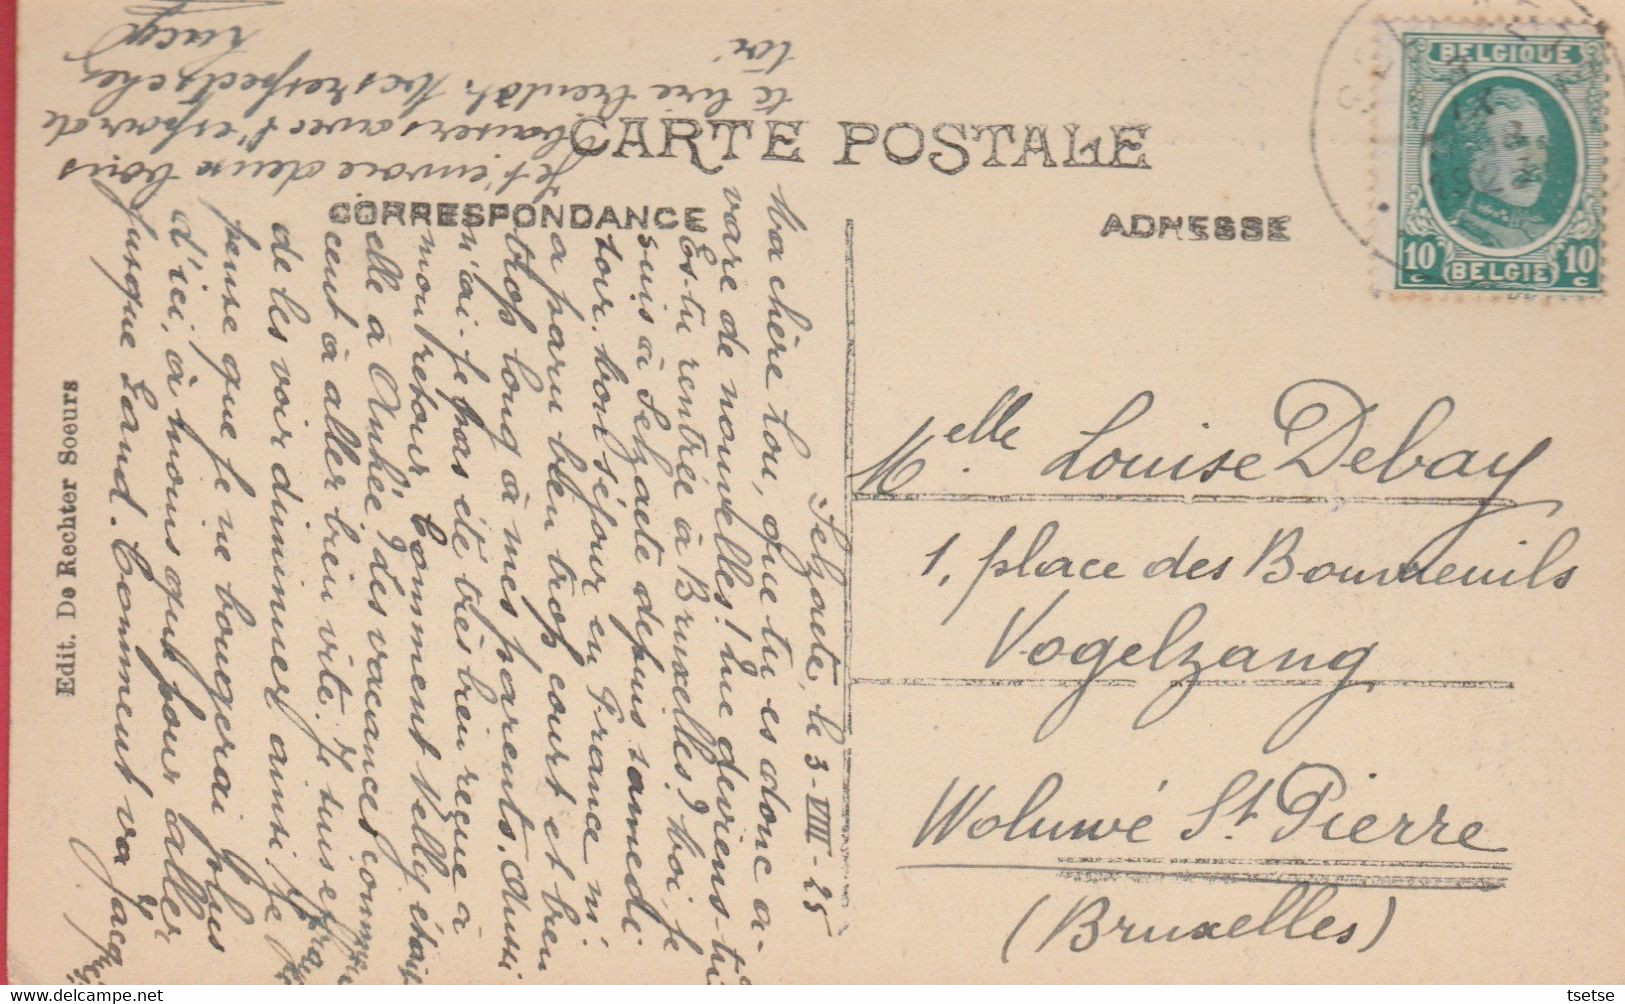 CARTE POSTALE
CORRESPONDANCE
ADRESSE
BELGIQUE
10 c BELGIE 10 c
Edit. De Rechter Soeurs
Selzaete, le 3-VIII-25
Ma chère Lou, que tu es donc a-
vare de nouvelles! Que deviens-tu
Es-tu rentrée à Bruxelles? Moi, je
suis à Selzaete depuis samedi
soir. Mon séjour en France m'
a paru bien trop court et bien
trop long à mes parents. Aussi
n'ai-je pas été très bien reçue à
mon retour. Comment Nelly était
elle à Anhée? Les vacances comm
cent à aller bien vite. Je suis
de les voir diminuer ainsi. Je
pense que je ne bougerai plus
d'ici, à moins que pour aller
jusque Gand. Comment va Jacq
Je t'envoie deux bons
baisers avec l'espoir de
te lire bientôt.
toi
Jacq
Melle Louise Debay
1, place des Bouvreuils
Vogelzang
Woluwé St. Pierre
(Bruxelles)
tsetse